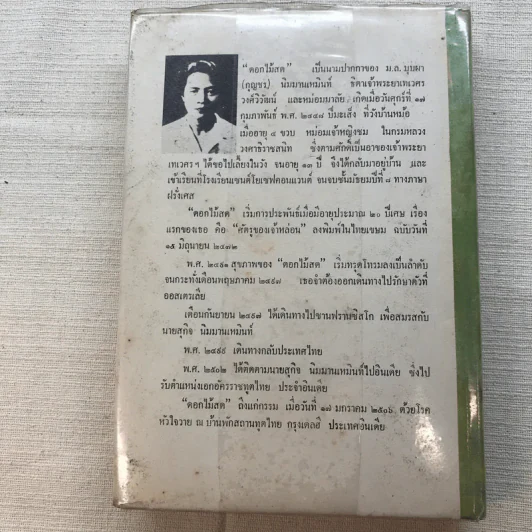 "ดอกไม้สด" เป็นนามปากกาของ ม.ล. บุบผา
(กุญชร) นิมมานเหมินท์ ธิดาเจ้าพระยาเทเวศร
วงศ์วิวัฒน์ และหม่อมมาลัย เกิดเมื่อวันศุกร์ที่ ๑๗
กุมภาพันธ์ พ.ศ. ๒๔๔๘ ปีมะเส็ง ที่วังบ้านหม้อ
เมื่ออายุ ๔ ขวบ หม่อมเจ้าหญิงชม ในกรมหลวง
วงศาธิราชสนิท ซึ่งตามศักดิ์เป็นอาของเจ้าพระยา
เทเวศรฯ ได้ขอไปเลี้ยงในวัง จนอายุ ๑๓ ปี จึงได้กลับมาอยู่บ้าน และ
เข้าเรียนที่โรงเรียนเซนต์โยเซฟคอนแวนต์ จนจบชั้นมัธยมปีที่ ๘ ทางภาษา
ฝรั่งเศส
"ดอกไม้สด" เริ่มการประพันธ์เมื่อมีอายุประมาณ ๒๐ ปีเศษ เรื่อง
แรกของเธอ คือ "ศัตรูของเจ้าหล่อน" ลงพิมพ์ในไทยเขษม ฉบับวันที่
๑๕ มิถุนายน ๒๔๗๒
พ.ศ. ๒๔๘๑ สุขภาพของ "ดอกไม้สด" เริ่มทรุดโทรมลงเป็นลำดับ
จนกระทั่งเดือนพฤษภาคม ๒๔๙๗ เธอจำต้องออกเดินทางไปรักษาตัวที่
ออสเตรเลีย
เดือนกันยายน ๒๔๙๗ ได้เดินทางไปซานฟรานซิสโก เพื่อสมรสกับ
นายสุกิจ นิมมานเหมินท์
พ.ศ. ๒๔๙๙ เดินทางกลับประเทศไทย
พ.ศ. ๒๕๐๒ ได้ติดตามนายสุกิจ นิมมานเหมินท์ไปอินเดีย ซึ่งไป
รับตำแหน่งเอกอัครราชทูตไทย ประจำอินเดีย
"ดอกไม้สด" ถึงแก่กรรม เมื่อวันที่ ๑๗ มกราคม ๒๕๐๖ ด้วยโรค
หัวใจวาย ณ บ้านพักสถานทูตไทย กรุงเดลฮี ประเทศอินเดีย